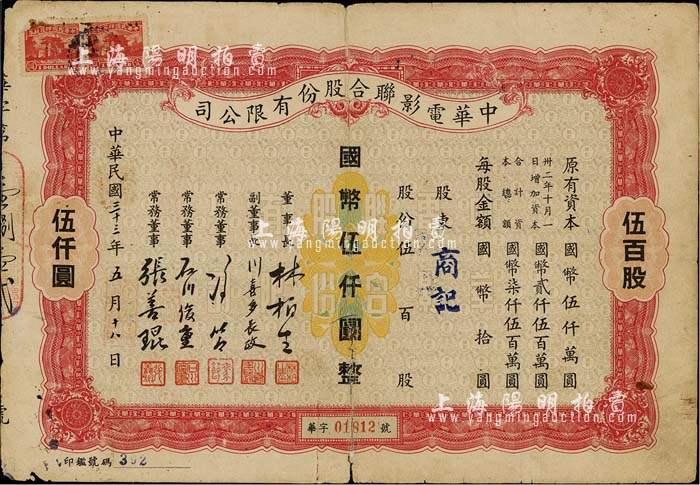 中華電影聯合股份有限公司
伍百股
原有資本 國幣伍仟萬圓
卅二年十月一日增加資本 國幣貳仟伍百萬圓
合計資本總額 國幣柒仟伍百萬圓
每股金額 國幣拾圓
股東 商記
股份 伍百股
國幣伍仟圓整
董事長 林柏生
副董事長 川喜多長政
常務董事 馮節
常務董事 石川俊重
常務董事 張善琨
中華民國三十三年五月十八日
伍仟圓
華字 01812 號
印鑑號碼 392
上海陽明拍賣
www.yangmingauction.com
上海陽明拍賣
www.yangmingauction.com
上海陽明拍賣
www.yangmingauction.com